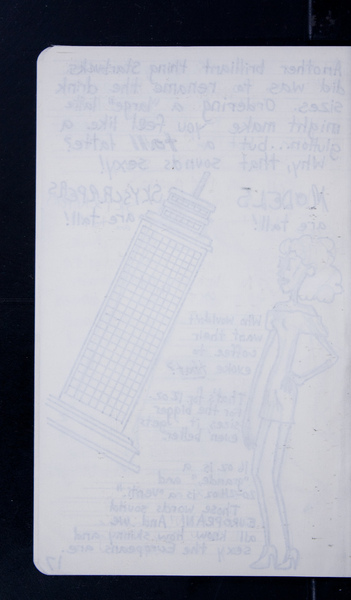 Another brilliant thing Starbucks
did was to rename the drink
sizes. Ordering a "large" latte
might make you feel like a
glutton...but a tall latte?
Why, that sounds sexy!
MODELS
are tall!
SKYSCRAPERS
are tall!
Who wouldn't
want their
coffee to
evoke
That's 12 oz.
For the bigger
sizes it gets
even better.
16 oz is a
"grande" and
20 oz is a "venti."
These words sound
EUROPEAN! And we
all know how skinny and
sexy the Europeans are.
17